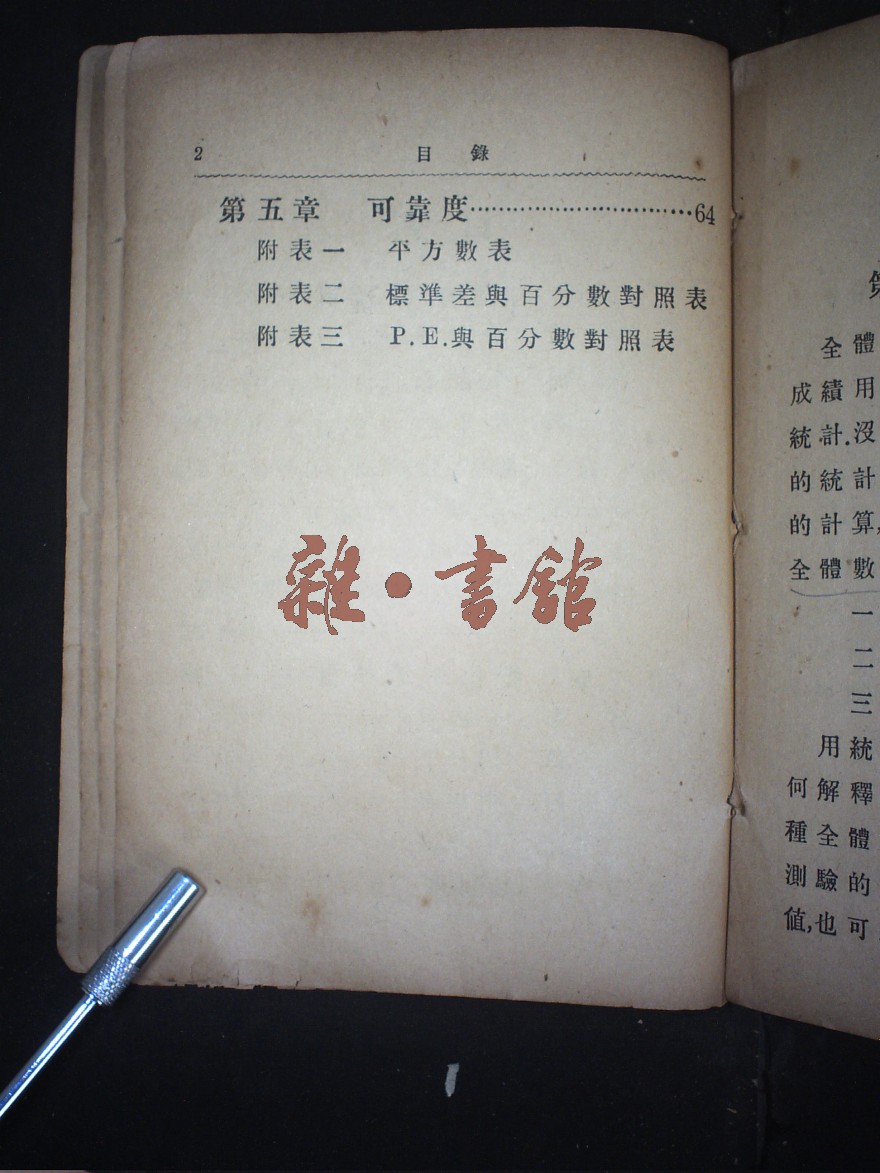 2 目錄
第五章 可靠度······························64
附表一 平方數表
附表二 標準差與百分數對照表
附表三 P.E.與百分數對照表
雜·書館
全體
成績用
統計.沒
的統計
的計算,
全體數
一
二
三
用統
何解釋
種全體
測驗的
值,也可